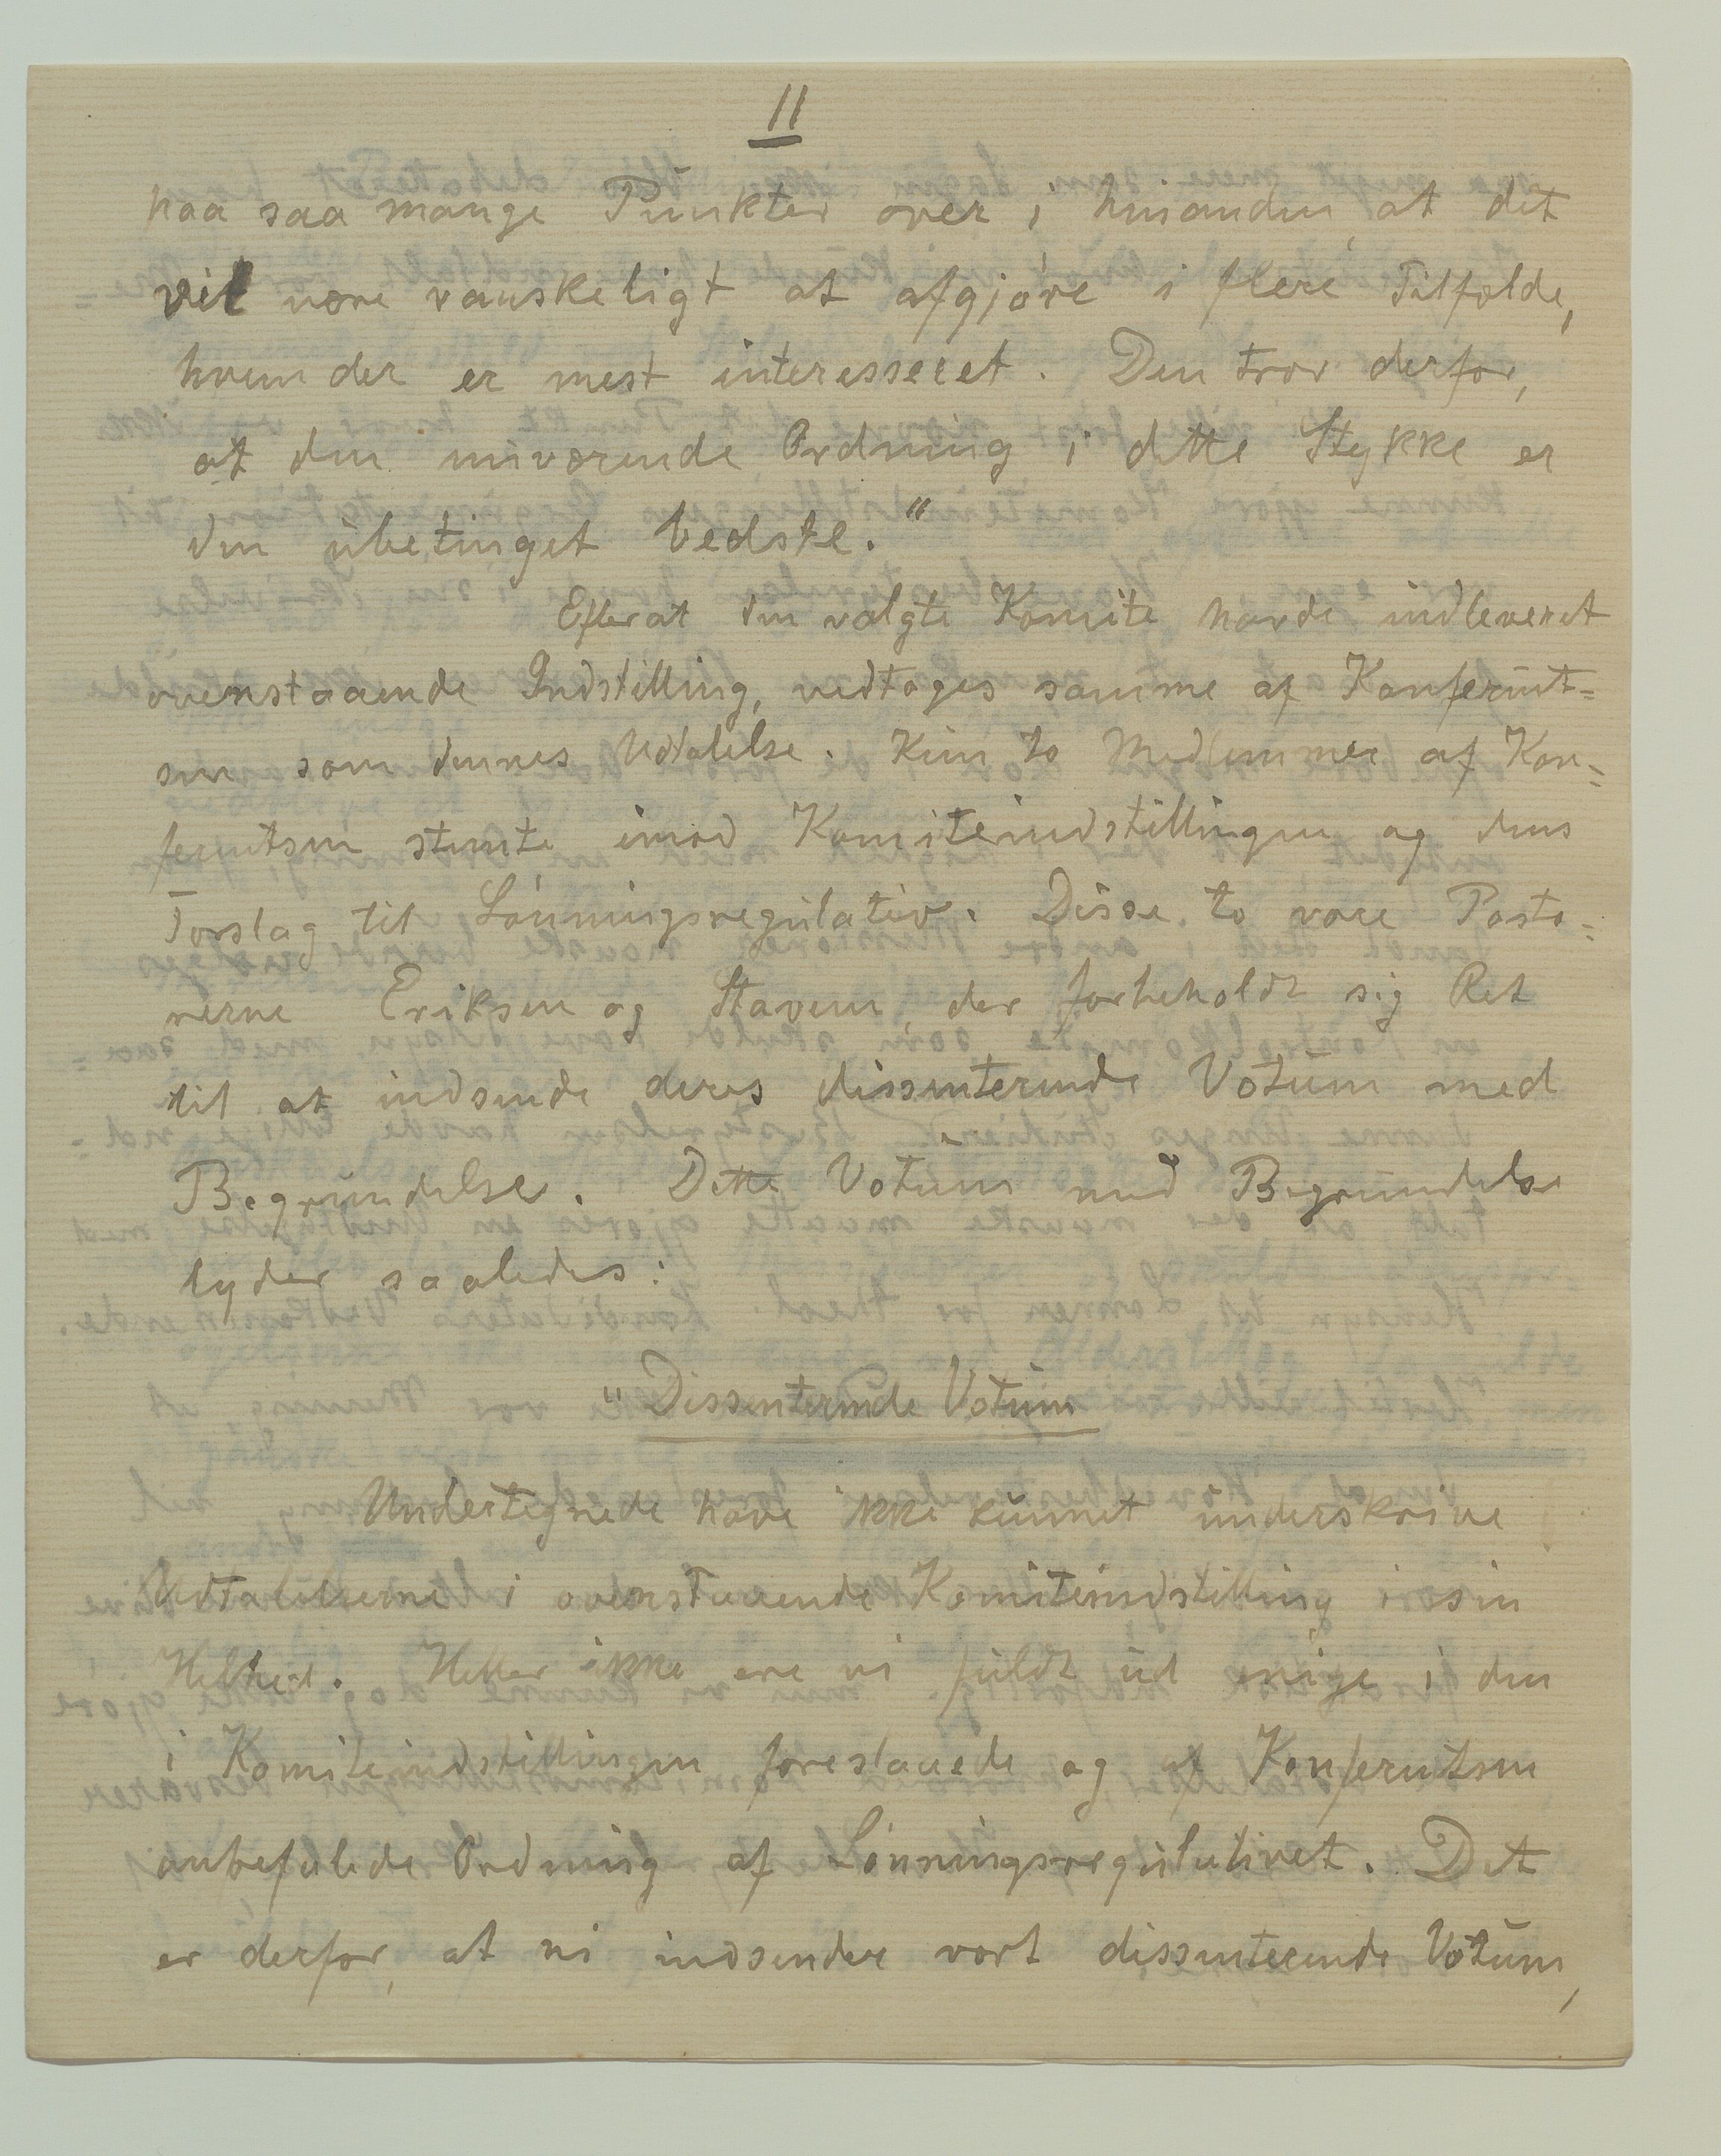 11
paa saa mange Punkter over i hinanden, at det
vil være vanskeligt at afgjøre i flere Tilfælde,
hvem der er mest interesseret. Den tror derfor,
at den nuværende Ordning i dette Stykke er
den ubetinget bedste."
Efterat den valgte Komite havde indleveret
ovenstaaende Indstilling, vedtoges samme af Konferent=
sen som dennes Udtalelse. Kun to Medlemmer af Kon=
ferentsen stemte imod Komiteindstillingen og dens
Forslag til Lønningsregulativ. Disse to vare Pasto=
rerne Eriksen og Stavem, der forbeholdt sig Ret
til at indsende deres dissenterende Votum med
Begrundelse. Dette Votum med Begrundelse
lyder saaledes:
"Dissenterende Votum
Undertegnede have ikke kunnet underskrive
Udtalelserne i ovenstaaende Komiteindstilling i sin
Helhed. Heller ikke ere vi fuldt ud enige i den
i Komiteindstillingen foreslaaede og af Konferentsen
anbefalede Ordning af Lønningsregulativet. Det
er derfor, at vi indsender vort dissenterende Votum,